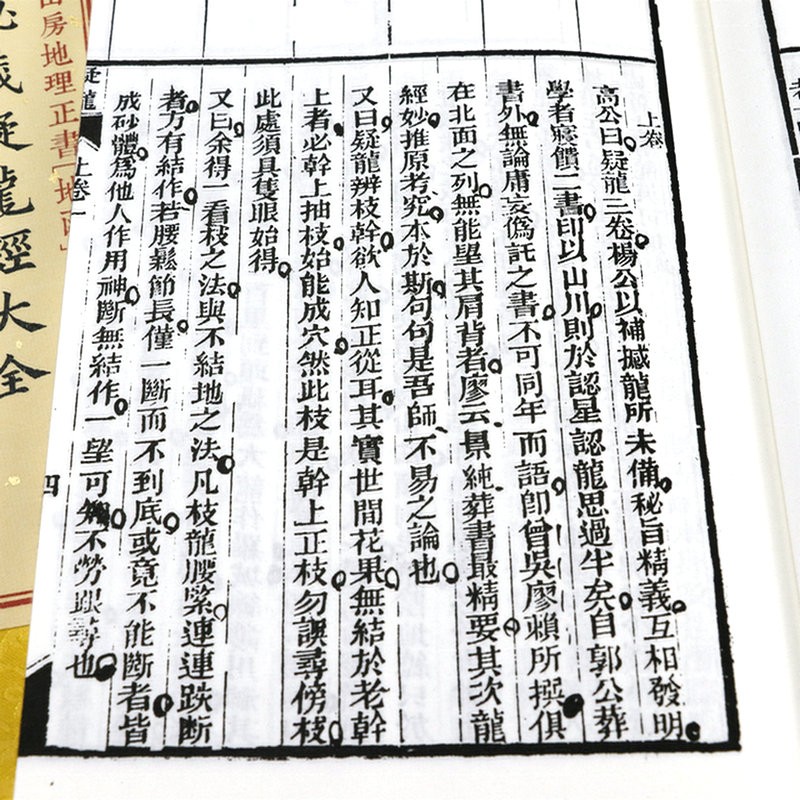 上卷
高公曰疑龍三卷楊公以補撼龍所未備秘旨精義互相發明
學者寢饋二書印以山川則於認星認龍思過半矣自郭公葬
書外無論庸妄偽託之書不可同年而語卽曾吳廖賴所撰俱
在北面之列無能望其肩背者廖云景純葬書最精要其次龍
經妙推原考究本於斯句句是吾師不易之論也
又曰疑龍辨枝幹欲人知正從耳其實世間花果無結於老幹
上者必幹上抽枝始能成穴然此枝是幹上正枝勿誤尋傍枝
此處須具隻眼始得
又曰余得一看枝之法與不結地之法凡枝龍腰緊連連跌斷
者方有結作若腰鬆節長僅一斷而不到底或竟不能斷者皆
成砂體爲他人作用神斷無結作一望可知不勞跟尋也
疑龍
上卷一
四
房地理正書
疑龍經大全